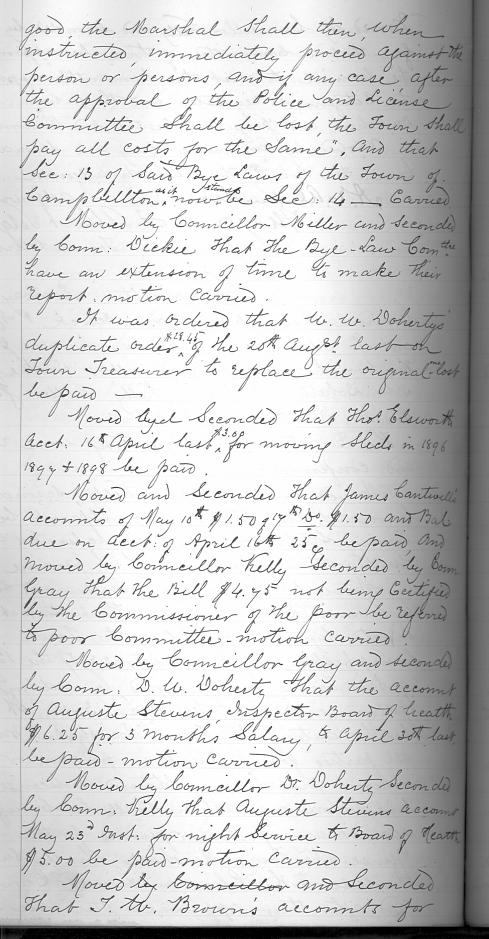 good, the Marshal shall then, when
instructed, immediately proceed against the
person or persons, and if any case after
the approval of the Police and License
Committee shall be lost, the Town shall
pay all costs for the same", And that
Sec: 13 of said Bye Laws of the Town of
Campbellton, as it now stands be Sec: 14 — Carried
Moved by Councillor Miller and seconded
by Coun: Dickie that the Bye-Law Comtee
have an extension of time to make their
report. motion carried.
It was ordered that W. W. Doherty's
duplicate order $28.45 of the 20th Augst. last on
Town Treasurer to replace the original lost
be paid —
Moved and Seconded that Thos. Elsworth
acct. 16th April last $3.00 for moving sleds in 1896
1897 & 1898 be paid.
Moved and Seconded that James Cantwell's
accounts of May 10th $1.50 & 17th Do. $1.50 and Bal
due on acct: of April 16th 25c be paid And
moved by Councillor Kelly seconded by Coun
Gray that the Bill $4.75 not being Certified
by the Commissioner of the poor be referred
to poor Committee - motion carried.
Moved by Councillor Gray and seconded
by Coun: D. W. Doherty that the account
of Auguste Stevens, Inspector Board of health
$6.25 for 3 months Salary, to April 30th last,
be paid - motion carried.
Moved by Councillor Dr. Doherty Seconded
by Coun: Kelly that Auguste Stevens account
May 23d Inst: for night Service to Board of Health
$5.00 be paid - motion carried.
Moved by Councillor and Seconded
that T. W. Brown's accounts for